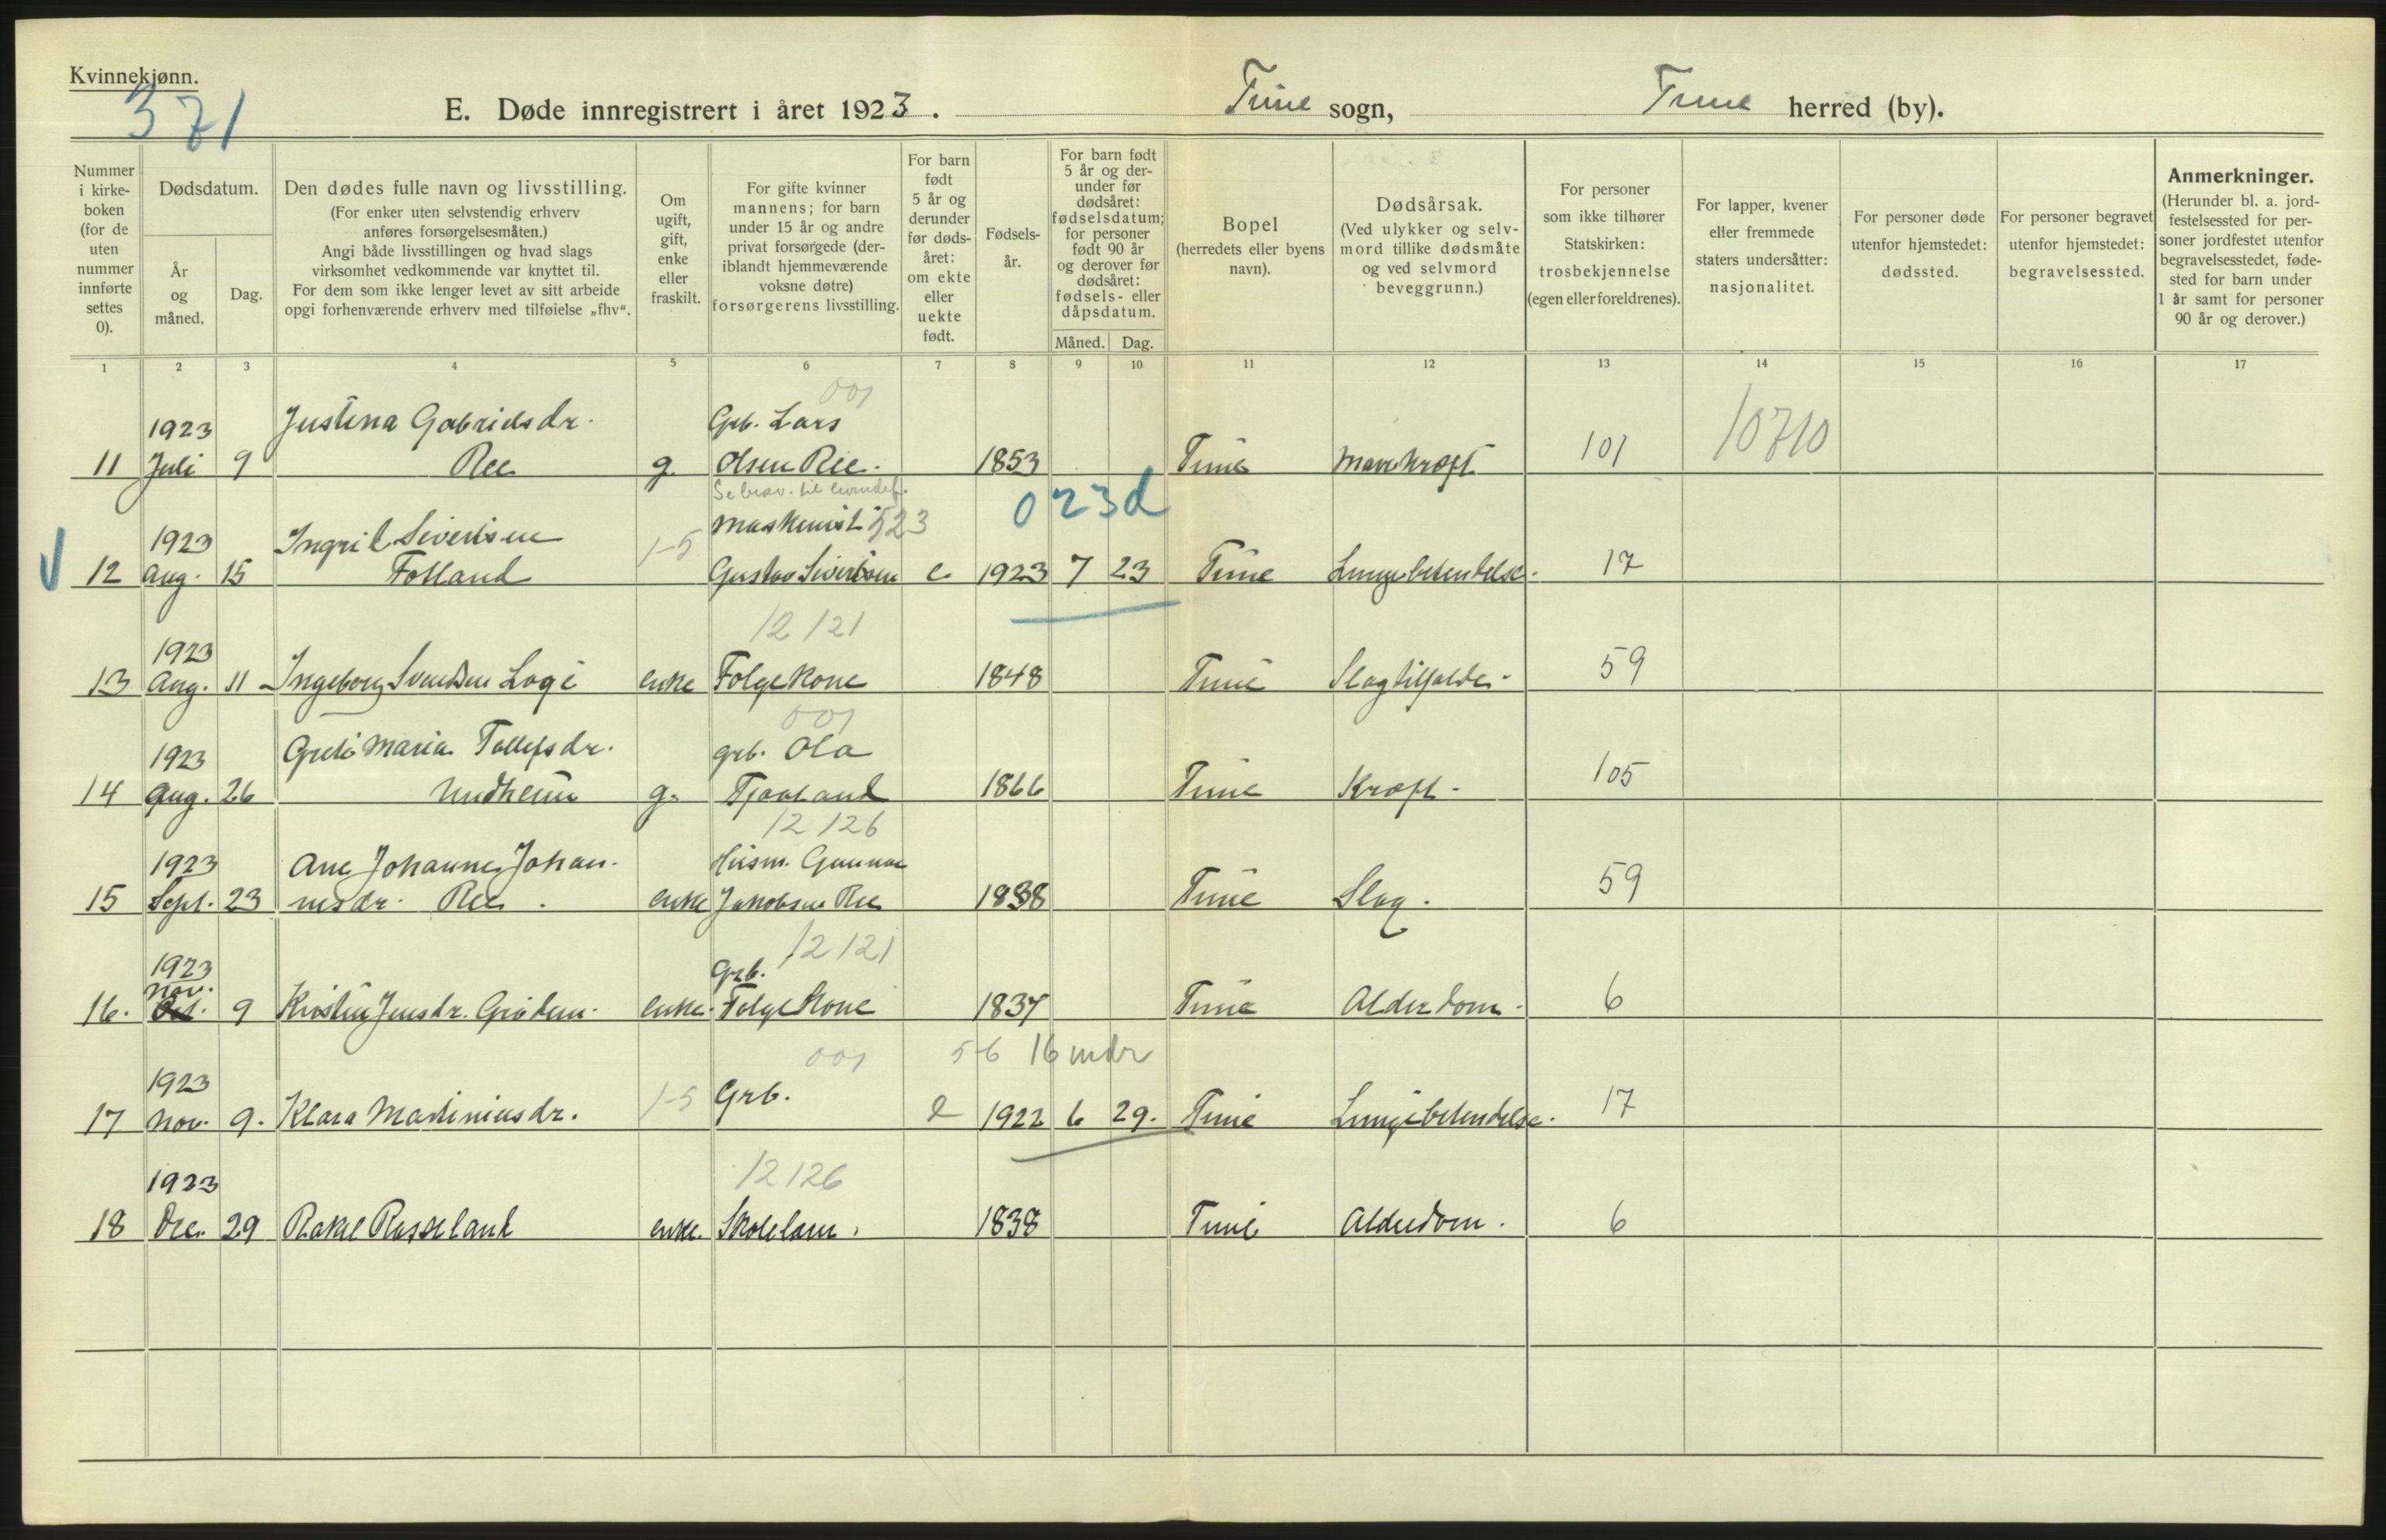 Kvinnekjønn.
371
E. Døde innregistrert i året 1923. Time sogn, Time herred (by).
Nummer i kirkeboken (for de uten nummer innførte settes 0).
Dødsdatum.
År og måned.
Dag.
Den dødes fulle navn og livsstilling.
(For enker uten selvstendig erhverv anføres forsørgelsesmåten.)
Angi både livsstillingen og hvad slags virksomhet vedkommende var knyttet til.
For dem som ikke lenger levet av sitt arbeide opgi forhenværende erhverv med tilføielse „fhv“.
Om ugift, gift, enke eller fraskilt.
For gifte kvinner mannens; for barn under 15 år og andre privat forsørgede (deriblandt hjemmeværende voksne døtre) forsørgerens livsstilling.
For barn født 5 år og derunder før dødsåret: om ekte eller uekte født.
Fødselsår.
For barn født 5 år og derunder før dødsåret: fødselsdatum; for personer født 90 år og derover før dødsåret: fødsels- eller dåpsdatum.
Måned. Dag.
Bopel (herredets eller byens navn).
Dødsårsak.
(Ved ulykker og selvmord tillike dødsmåte og ved selvmord beveggrunn.)
For personer som ikke tilhører Statskirken: trosbekjennelse (egen eller foreldrenes).
For lapper, kvener eller fremmede staters undersåtter: nasjonalitet.
For personer døde utenfor hjemstedet: dødssted.
For personer begravet utenfor hjemstedet: begravelsessted.
Anmerkninger.
(Herunder bl. a. jordfestelsessted for personer jordfestet utenfor begravelsesstedet, fødested for barn under 1 år samt for personer 90 år og derover.)
1 2 3 4 5 6 7 8 9 10 11 12 13 14 15 16 17
001
1923 Justina Gabrielsdr. Grb. Lars
11 Juli 9 Ree g. Olsen Ree. 1853 Time Mavekræft 101 10710
Se besv. til
1923 Ingrid Sivertsen Maskinist 523 023d
12 Aug. 15 Folland 1-5 Gustav Sivertsen e 1923 7 23 Time Lungebetendelse. 17
12121
1923
13 Aug. 11 Ingeborg Svendsen Loge enke Folgekone 1848 Time Slagtilfælde. 59
001
1923 Grete Maria Tollefsdr. grb. Ola
14 Aug. 26 Undheim g. Tjaaland 1866 Time Kræft. 105
12126
1923 Ane Johanne Johan- Husm. Gunnar
15 Sept. 23 nesdr. Ree. enke Jakobsen Ree 1838 Time Slag. 59
12121
1923 Nov. Grb.
16. Oct. 9 Kirstin Jensdr. Grødem. enke. Folgekone 1837 Time Alderdom. 6
001 5-6 16 mdr
1923
17 Nov. 9. Klara Martiniusdr. 1-5 Grb. e 1922 6 29. Time Lungebetendelse. 17
12126
1923
18 Dec. 29 Rakel Rosseland enke. Skolelær. 1838 Time Alderdom. 6